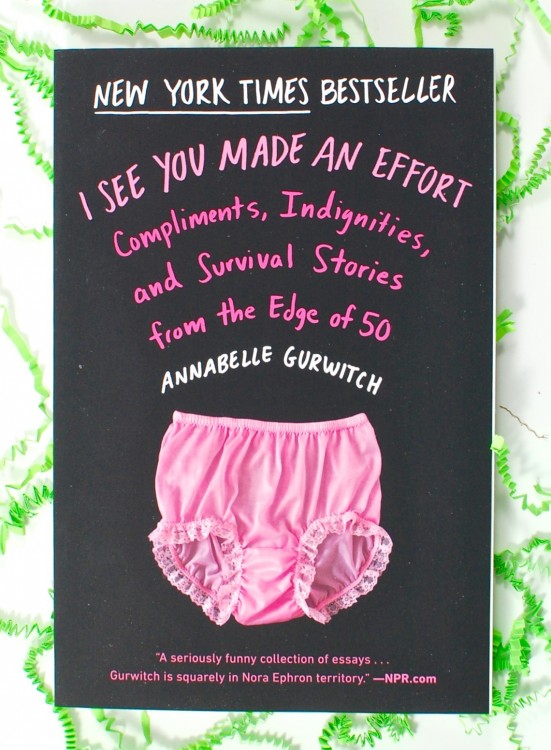 NEW YORK TIMES BESTSELLER
I SEE YOU MADE AN EFFORT
Compliments, Indignities,
and Survival Stories
from the Edge of 50
ANNABELLE GURWITCH
"A seriously funny collection of essays . . .
Gurwitch is squarely in Nora Ephron territory." —NPR.com